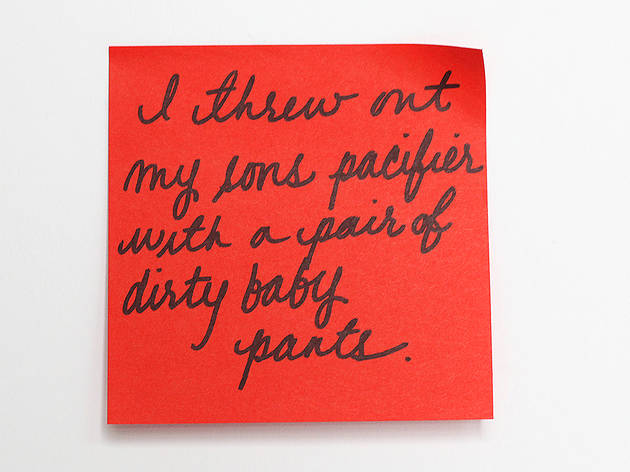 I threw out
my sons pacifier
with a pair of
dirty baby
pants.